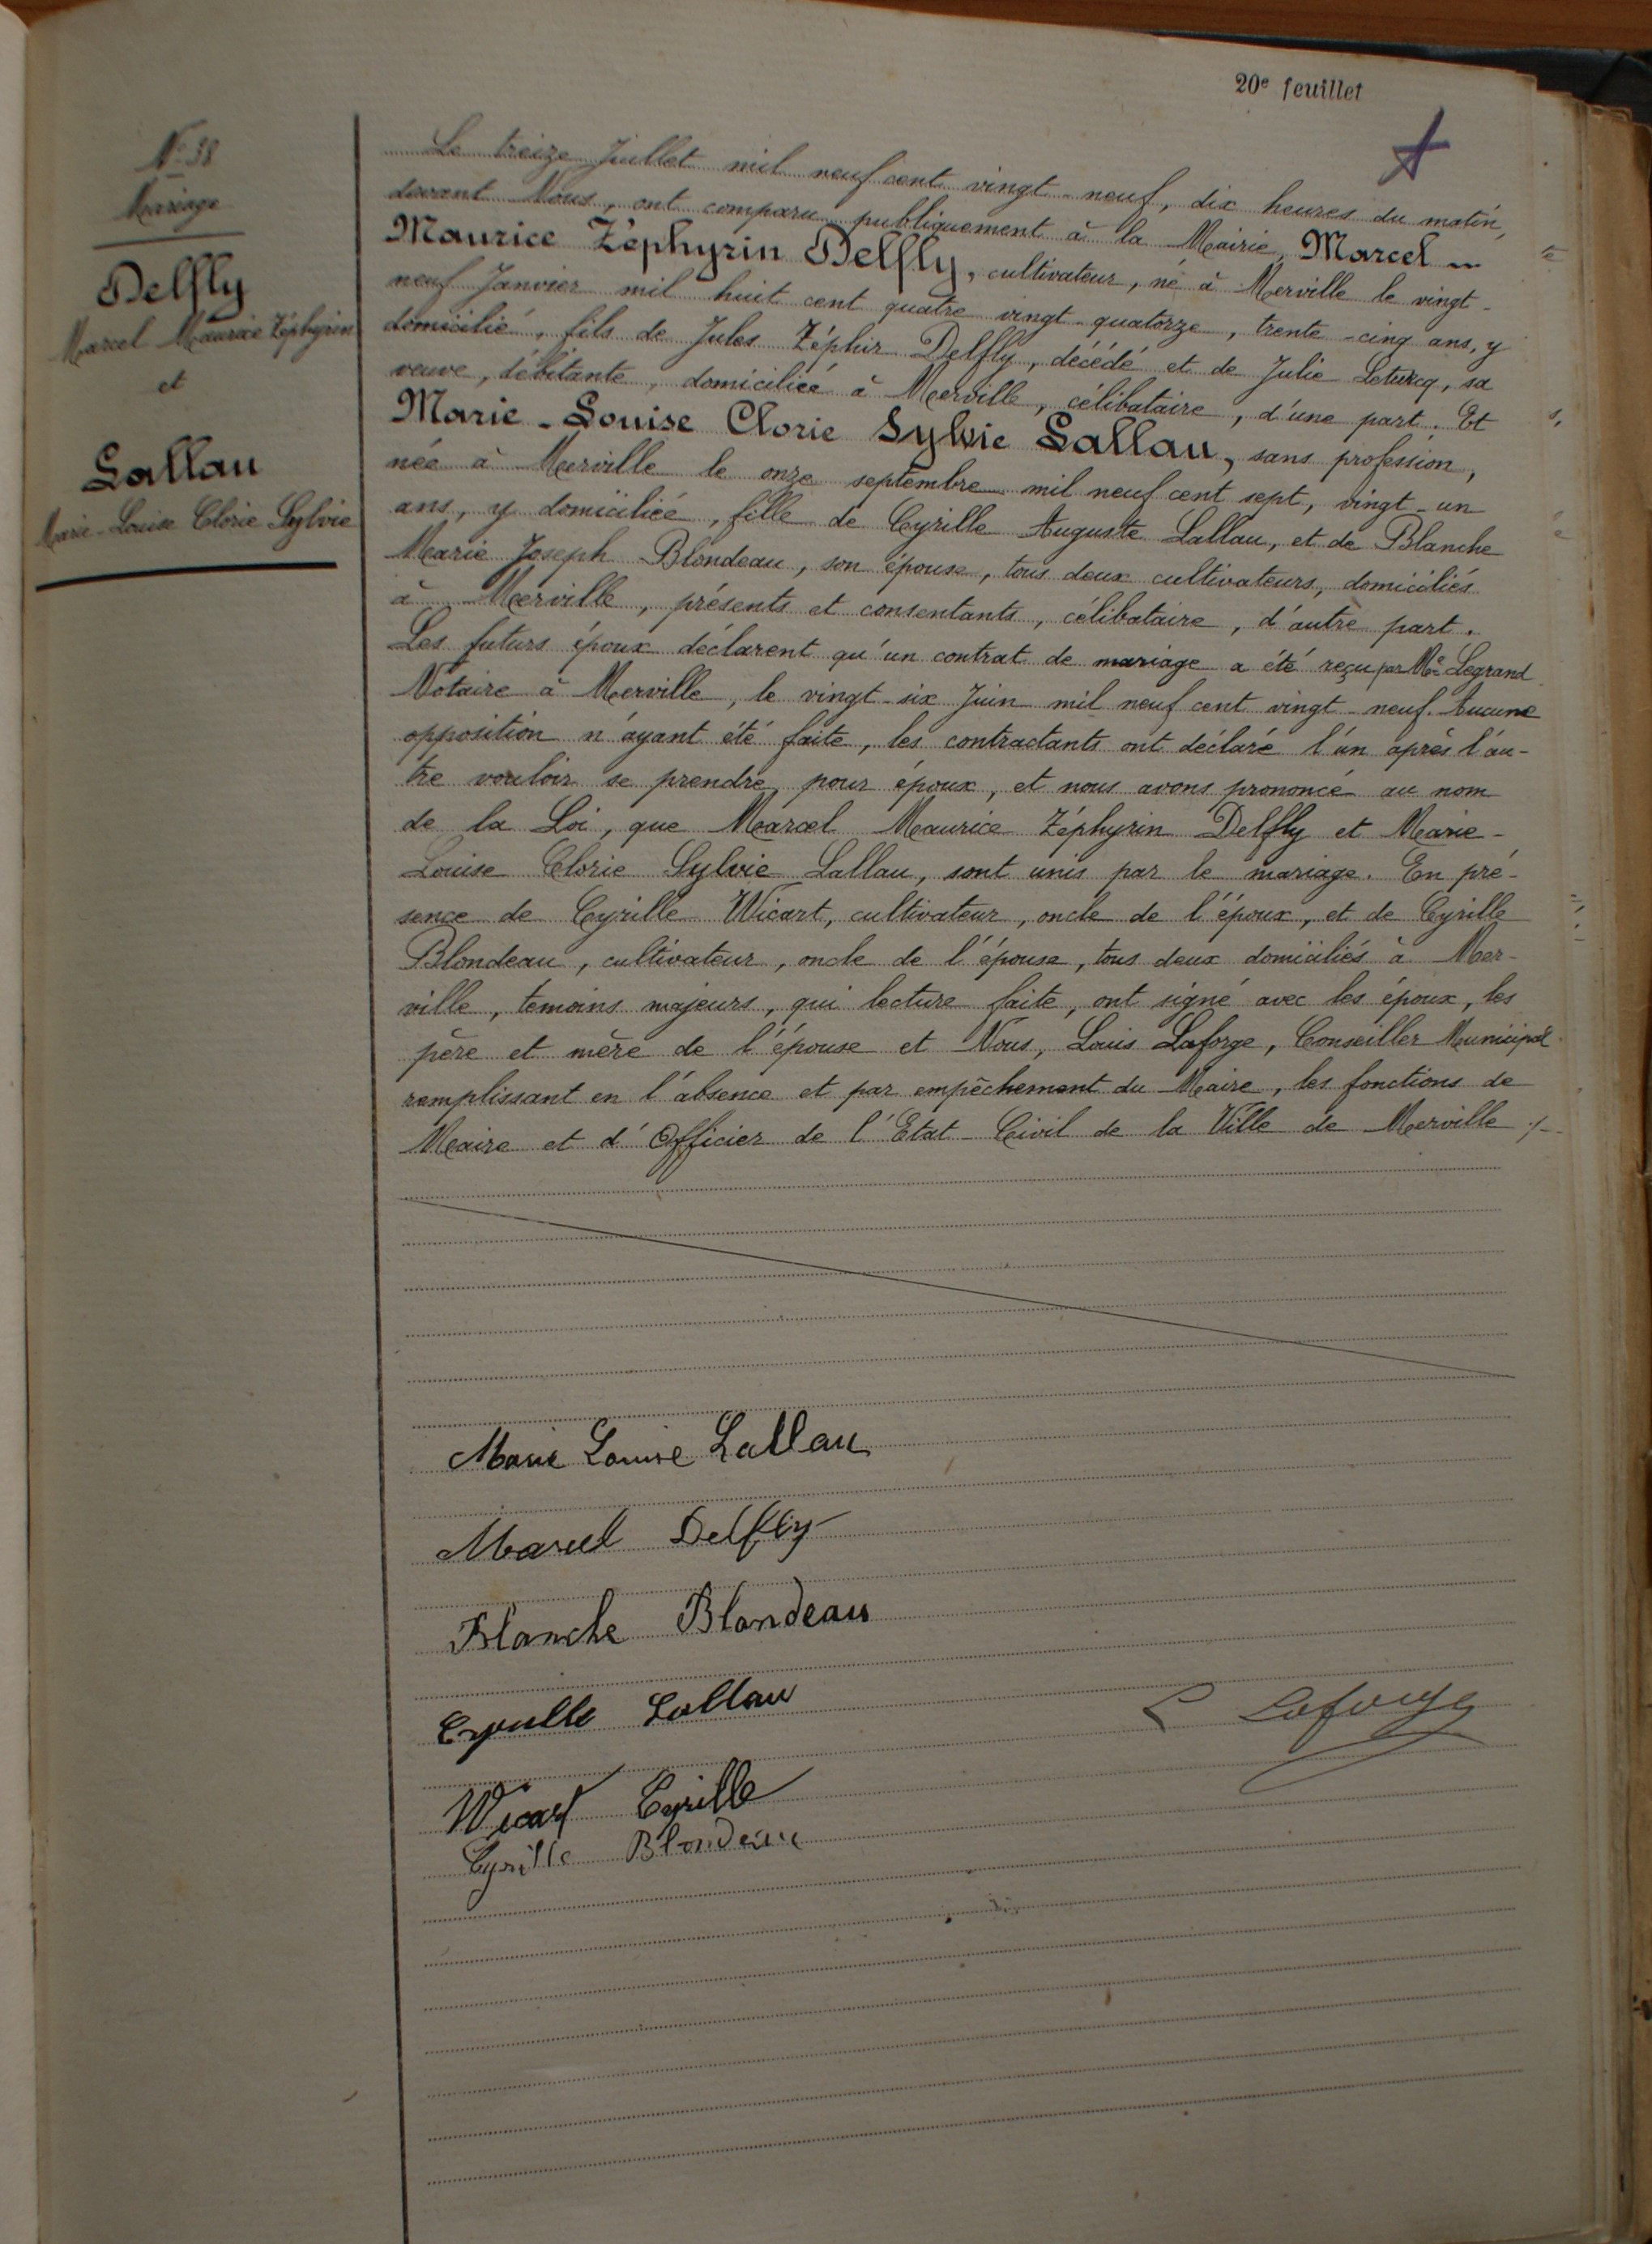 20e feuillet
N° 38
Mariage
Delfly
Marcel Maurice Zéphyrin
et
Lallau
Marie-Louise Clorie Sylvie
Le treize Juillet mil neuf cent vingt-neuf, dix heures du matin,
devant Nous, ont comparu publiquement à la Mairie, Marcel
Maurice Zéphyrin Delfly, cultivateur, né à Merville le vingt-
neuf Janvier mil huit cent quatre vingt-quatorze, trente-cinq ans, y
domicilié, fils de Jules Zéphir Delfly, décédé et de Julie Leturcq, sa
veuve, débitante, domiciliée à Merville, célibataire, d'une part. Et
Marie-Louise Clorie Sylvie Lallau, sans profession,
née à Merville le onze septembre mil neuf cent sept, vingt-un
ans, y domiciliée, fille de Cyrille Auguste Lallau, et de Blanche
Marie Joseph Blondeau, son épouse, tous deux cultivateurs, domiciliés
à Merville, présents et consentants, célibataire, d'autre part.
Les futurs époux déclarent qu'un contrat de mariage a été reçu par Me Legrand
Notaire à Merville, le vingt-six Juin mil neuf cent vingt-neuf. Aucune
opposition n'ayant été faite, les contractants ont déclaré l'un après l'au-
tre vouloir se prendre pour époux, et nous avons prononcé au nom
de la Loi, que Marcel Maurice Zéphyrin Delfly et Marie-
Louise Clorie Sylvie Lallau, sont unis par le mariage. En pré-
sence de Cyrille Wicart, cultivateur, oncle de l'époux, et de Cyrille
Blondeau, cultivateur, oncle de l'épouse, tous deux domiciliés à Mer-
ville, temoins majeurs, qui lecture faite, ont signé avec les époux, les
père et mère de l'épouse et Nous, Louis Laforge, Conseiller Municipal
remplissant en l'absence et par empêchement du Maire, les fonctions de
Maire et d'Officier de l'Etat-Civil de la Ville de Merville ./.
Marie Louise Lallau
Marcel Delfly
Blanche Blondeau
Cyrille Lallau
L Laforge
Wicart Cyrille
Cyrille Blondeau